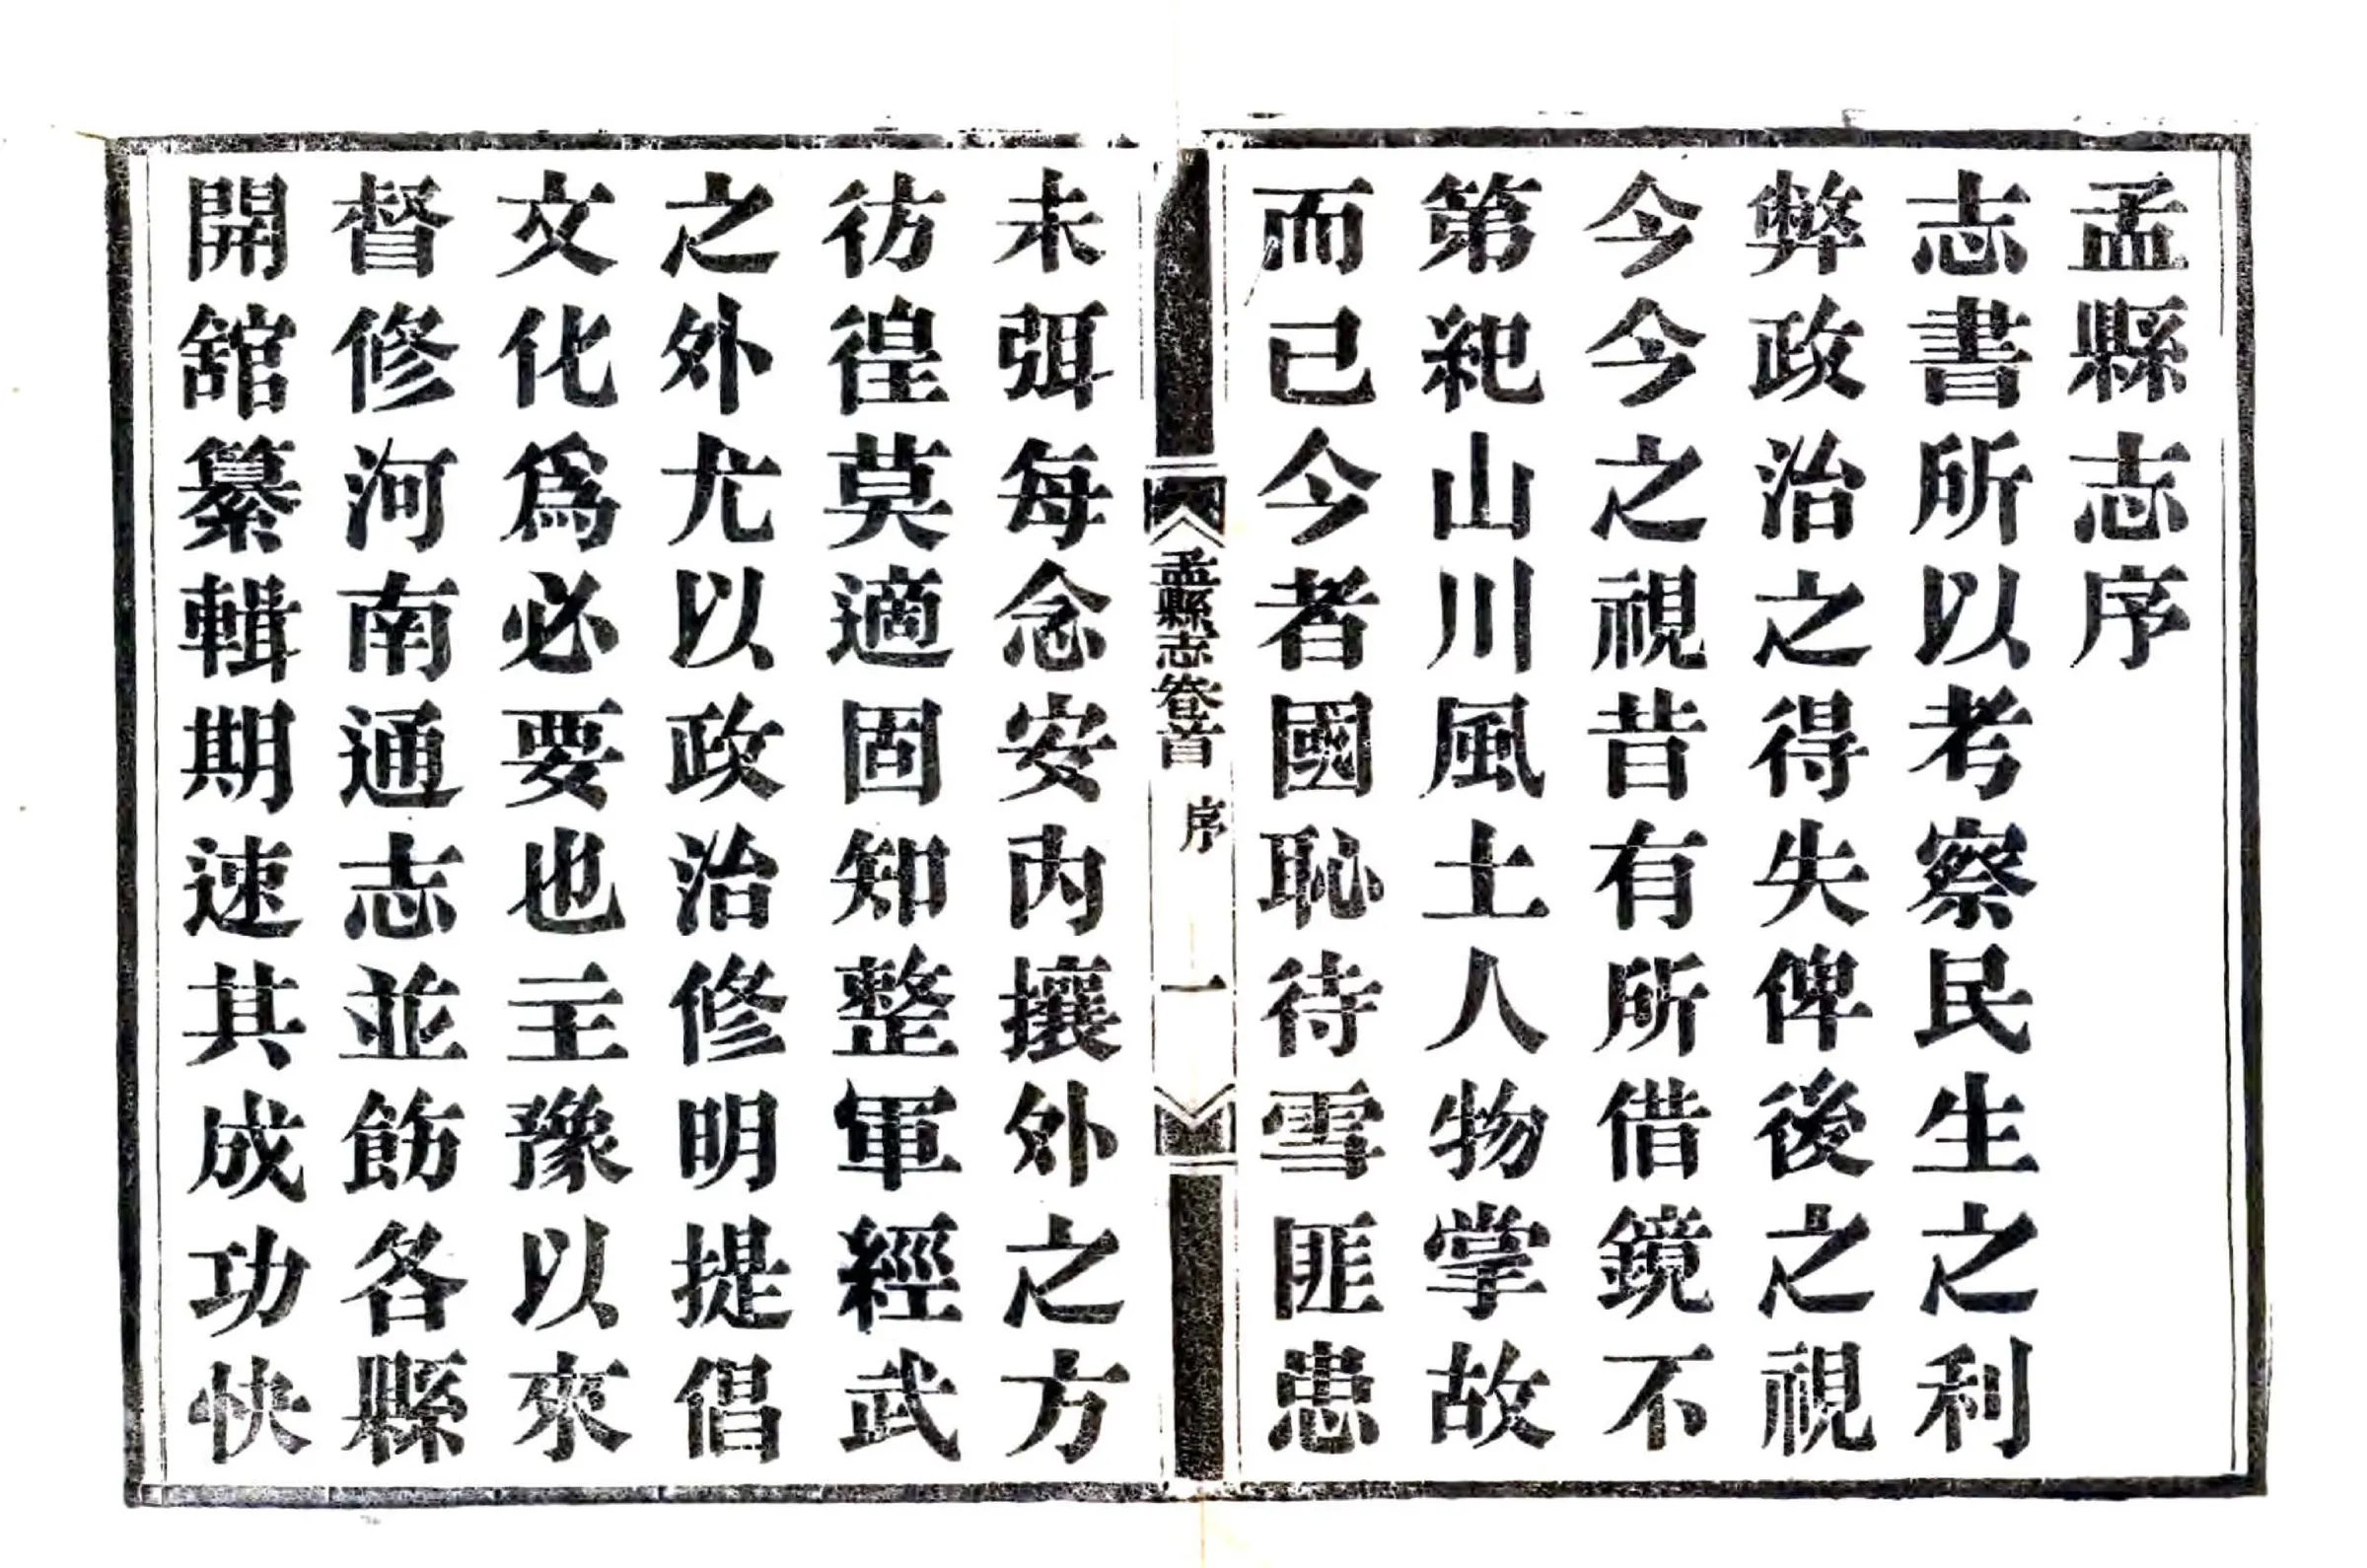 孟縣志序
志書所以考察民生之利
弊政治之得失俾後之視
今今之視昔有所借鏡不
第紀山川風土人物掌故
而已今者國恥待雪匪患
孟縣志卷首 序 一
未弭每念安內攘外之方
彷徨莫適固知整軍經武
之外尤以政治修明提倡
文化爲必要也主豫以來
督修河南通志並飭各縣
開舘纂輯期速其成功快